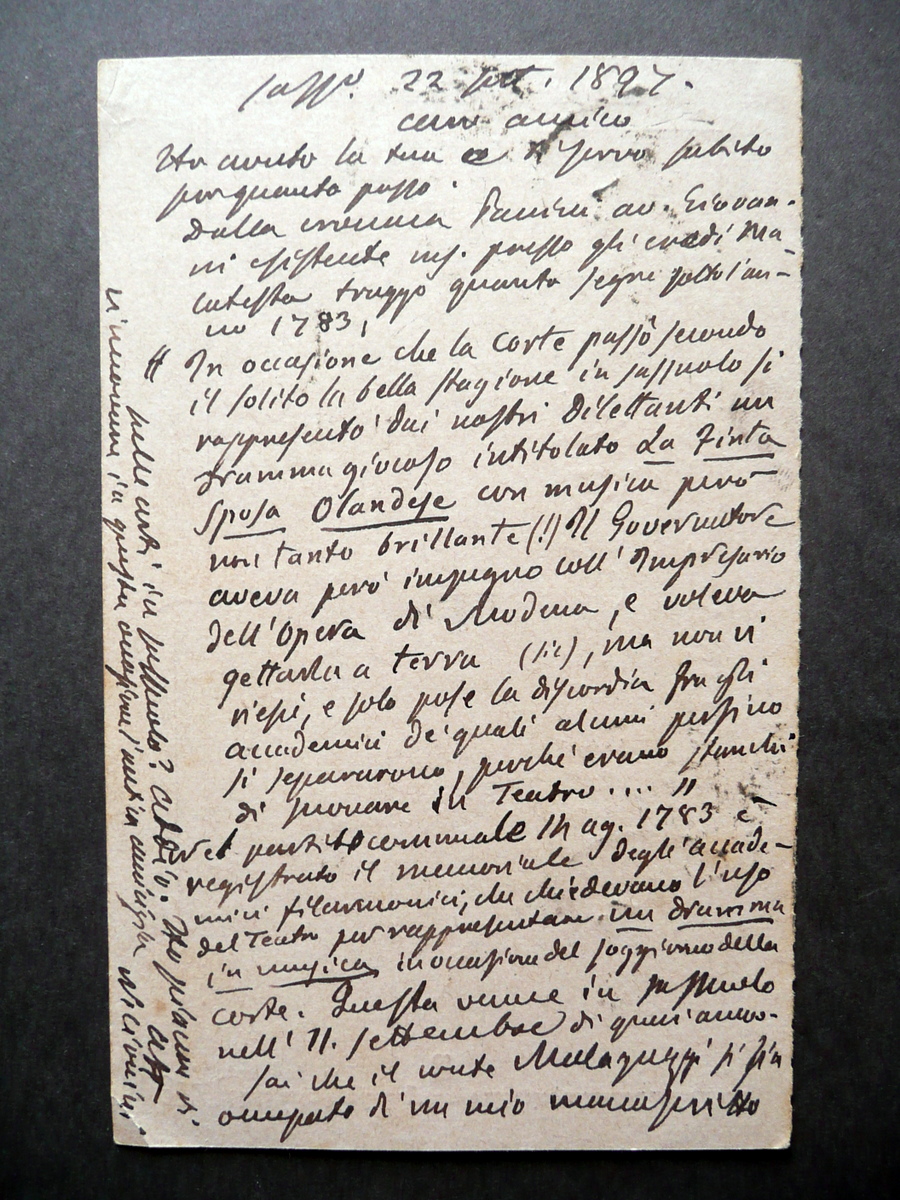 Sass.º 22 sett. 1897.
caro amico
Ho avuto la tua e ti servo subito
per quanto posso.
Dalla cronaca Panini av. Giovan-
ni esistente ms. presso gli eredi Ma-
catesta traggo quanto segue sotto l'an-
no 1783,
" In occasione che la corte passò secondo
il solito la bella stagione in sassuolo si
rappresentò dai nostri Dilettanti un
dramma giocoso intitolato La Finta
Sposa Olandese con musica però
non tanto brillante (!) Il Governatore
aveva però impegno coll' Impresario
dell'Opera di Modena, e voleva
gettarla a terra (sic), ma non vi
riescì, e solo pose la discordia fra gli
accademici de' quali alcuni persino
si separarono, perché erano stanchi
di suonare in Teatro .... "
Nel partito communale 14 ag. 1783 è
registrato il memoriale degli accade-
mici filarmonici, che chiedevano l'uso
del Teatro per rappresentare un dramma
in musica in occasione del soggiorno della
corte. Questa venne in Sassuolo
nell' 11. settembre di quell'anno.
Sai che il conte Malaguzzi si sia
occupato di un mio manoscritto
sulle arti in sassuolo? addio. Ho piacere di
rinnovare in questa occasione l'antica amicizia